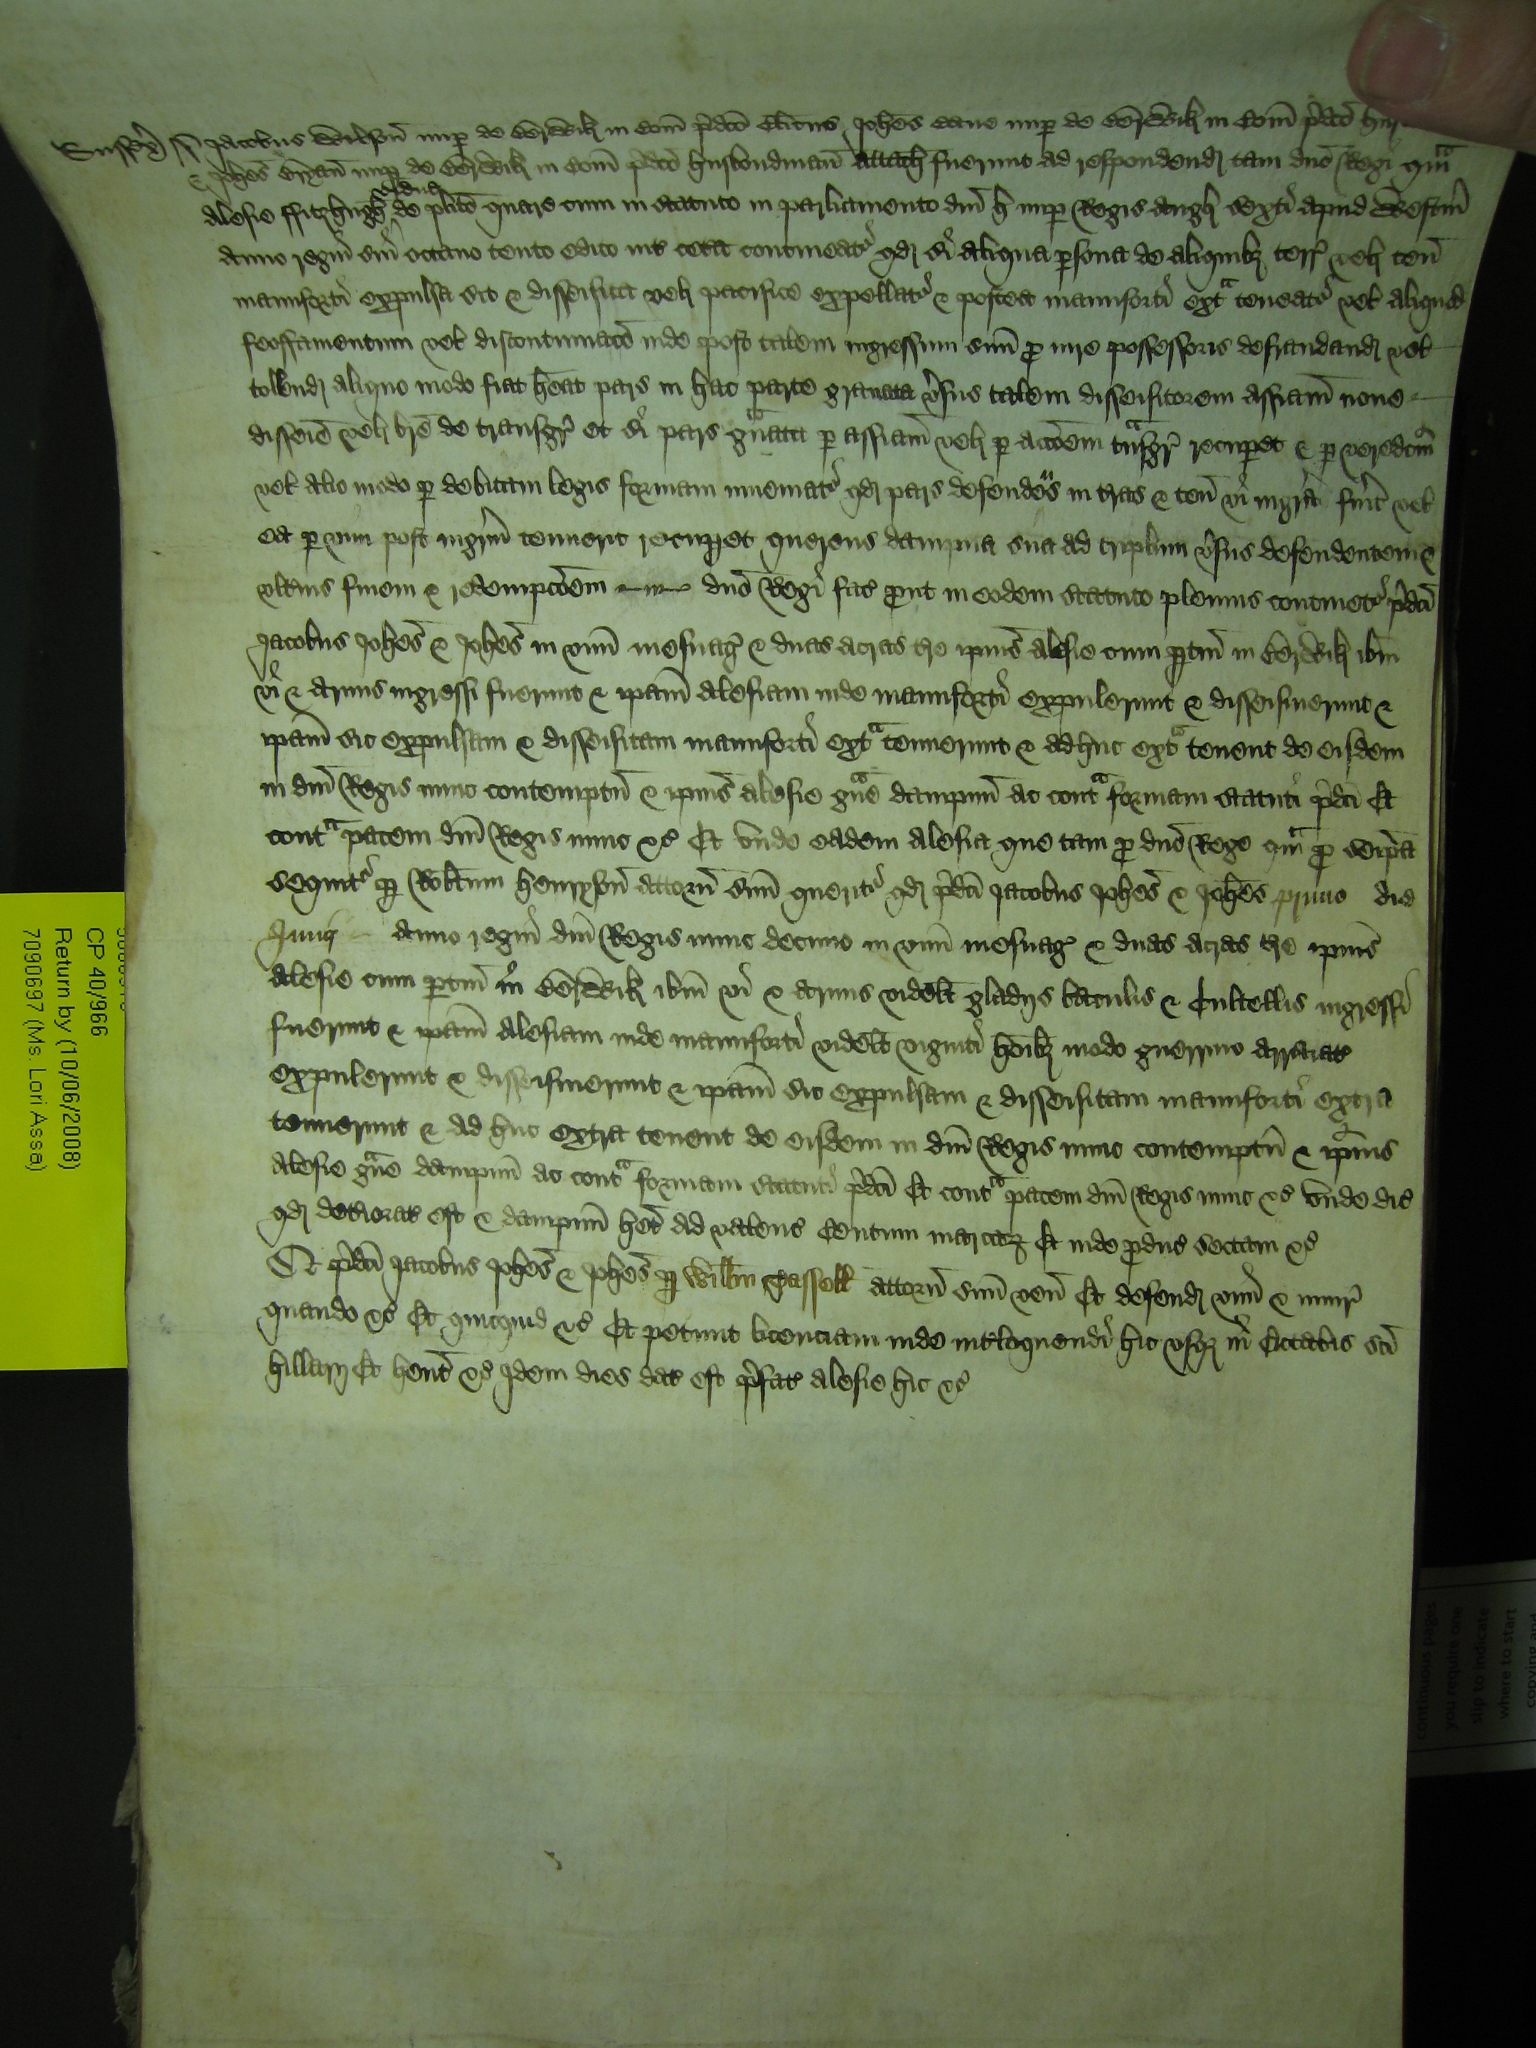 Sussex̃ ss Jacobus Wilson̄ nup̱ de Berwik in Com̄ p̃dc̃o Cl̃icus Joh̃es nup̱ de Berwik in Com̄ p̃dc̃o
& Joh̃es Bryan̄ nup̱ de Berwik in Com̄ p̃dc̃o husbondman̄ attach̃ fuerunt ad respondend̃ tam dn̄o Regi qᵐa
vidue
Alesie ffitzhugh de pl̃ito quare cum in statuto in parliamento dn̄i H̃ nup̱ Regis Angl̃ sexti apud Westm̃
anno regni sui octavo tento edito int̃ cet̃a contineat̃ qd̃ si aliqua p̱sona de aliquibȝ terr̃ vel ten̄
manuforti expulsa sit & disseisita vel pacifice expellat̃ & postea manuforti extᵃ teneat̃ vel aliquod
feoffamentum vel discontinuac̃o inde post talem ingressum suū p̱ iure possessoris defraudand̃ vel
tollend̃ aliquo modo fiat h̃eat pars in hac parte gravata ṽsus talem disseisitorem assisam̃ nove
disseiẽ vel br̃e de transgr̃ et si pars gᵃvata p̱ assisam̃ vel p̱ acc̃oem tᵃnsgr̃ recup̱et & p̱ veredc̃m
vel alio modo p̱ debitam legis formam inveniat̃ qd̃ pars defendẽs in t̃ras & ten̄ vi ingr̃a fũit vel
ea p̱ vim post ingr̃m tenuerit recup̱et querens dampna sua ad triplum ṽsus defendentem &
ult̃ius finem & redempc̃oem dn̄o Regi fac̃ p̱ut in eodem statuto plenius continet̃ p̃dc̃i
Jacobus Joh̃es & Joh̃es in unū mesuag̃ & duas acras t̃re ip̄ius Alesie cum p̱tin̄ in Berwik ib̃m
vi & armis ingressi fuerunt & ip̄am Alesiam inde manuforti expulerunt & disseisiverunt &
ip̄am sic expulsam & disseisitam manuforti extᵃ tenuerunt & adhuc extᵃ tenent de eisdem
in dn̄i Regis nunc contemptū & ip̄ius Alesie gᵃve dampnū ac contᵃ formam statuti p̃dc̃i Et
contᵃ pacem dn̄i Regis nunc &c̃ Et unde eadem Alesia que tam p̱ dn̄o Rege qᵐa p̱ seip̄a
sequit̃ p̱ Rob̃tum Henryson̄ attorñ suū querit̃ qd̃ p̃dc̃i Jacobus Joh̃es & Joh̃es primo die
Junij anno regni dn̄i Regis nunc decimo in unū mesuag̃ & duas acras t̃re ip̄ius
Alesie cum p̱tin̄ in Berwik ib̃m vi & armis videl̃t gladijs baculis & Cultellis ingressi
fuerunt & ip̄am Alesiam inde manuforti videl̃t viginti ho̅ibȝ modo guerrino arraiat̃
expulerunt & disseisiverunt & ip̄am sic expulsam & disseisitam manuforti extra
tenuerunt & ad huc extra tenent de eisdem in dn̄i Regis nunc contemptū & ip̄ius
Alesie gᵃve dampnū ac contᵃ formam statuti p̃dc̃i Et contᵃ pacem dn̄i Regis nunc &c̃ unde dic̃
qd̃ det̃iorat̃ est & dampnū h̃et ad valenc̃ Centum marcaȝ Et inde p̱duc̃ sectam &c̃
Et p̃dc̃i Jacobus Joh̃es & Joh̃es p̱ Will̃m Tassell attorñ suū ven̄ Et defend̃ vim & iniur̃
quando &c̃ Et quicquid &c̃ Et petunt licenciam inde int̃loquendi hic usqȝ in Octabis sc̃i
Hillarij Et h̃ent &c̃ Idem dies dat̃ est p̃fat̃ Alesie hic &c̃
CP 40/966
Return by (10/06/2008)
7090697 (Ms. Lori Assa)
continuous pages
you require one
slip to indicate
where to start
copying and